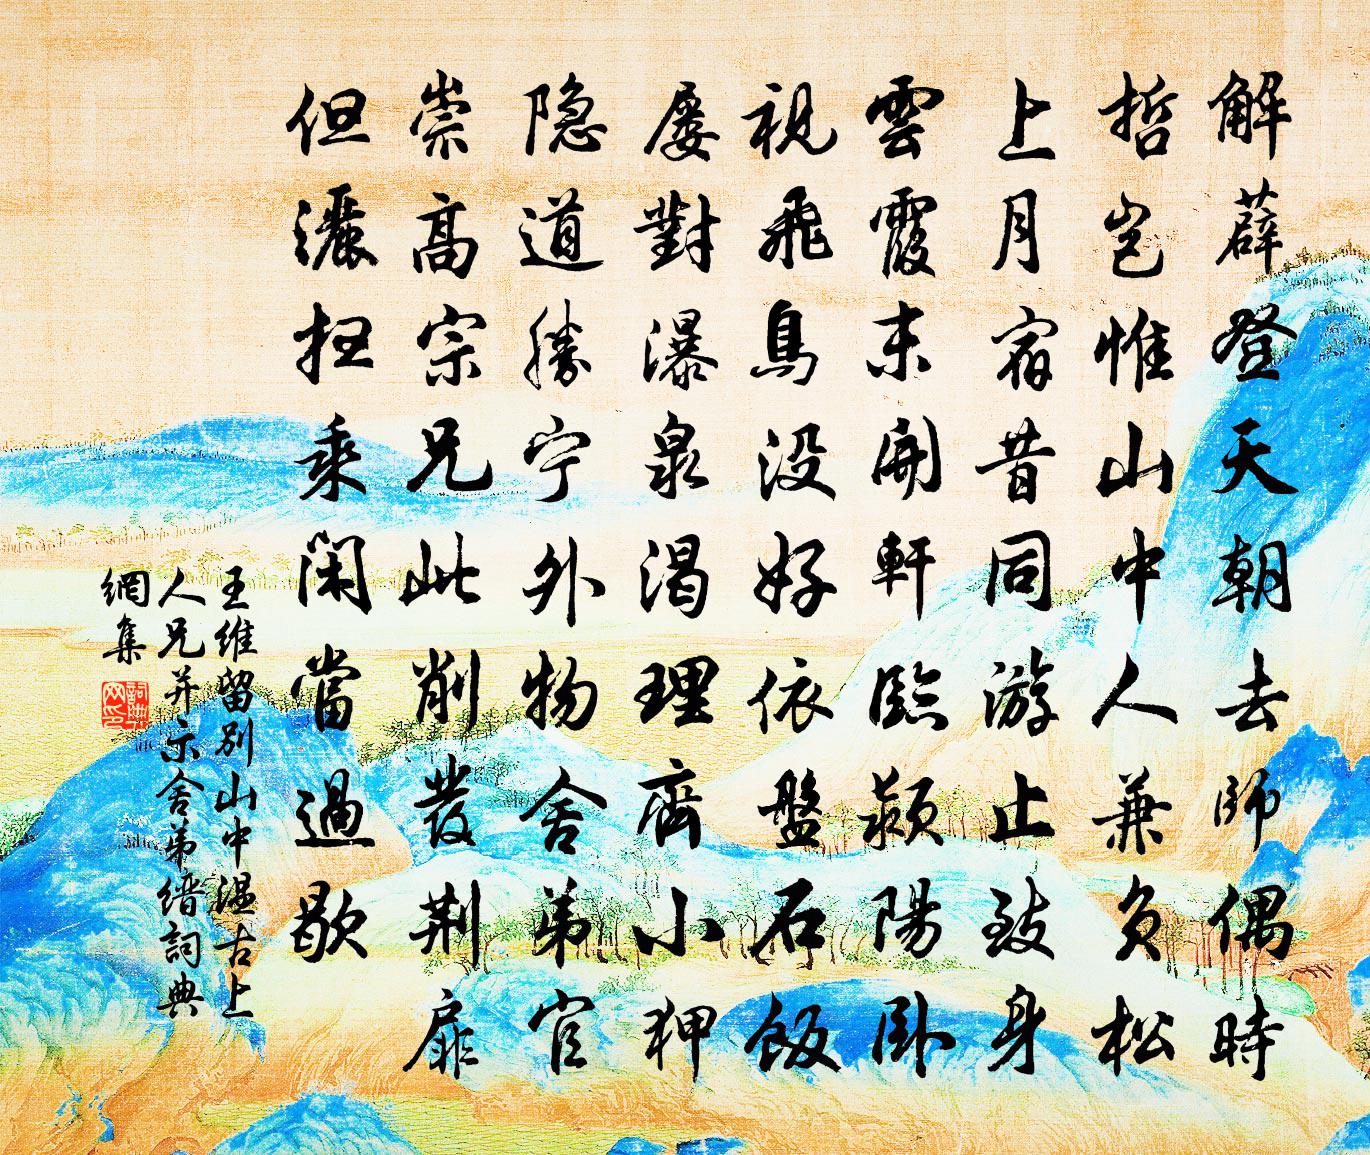 解薜登天朝去師偶時
哲岂惟山中人兼负松
上月宿昔同游止致身
雲霞末開軒臨潁陽卧
視飛鳥没好依盤石飯
屡對瀑泉渴理齊小狎
隐道勝宁外物舍弟官
崇高宗兄此削發荆扉
但灑扫乘闲當過歇
王維留别山中温古上
人兄并示舍弟缙詞典
網集